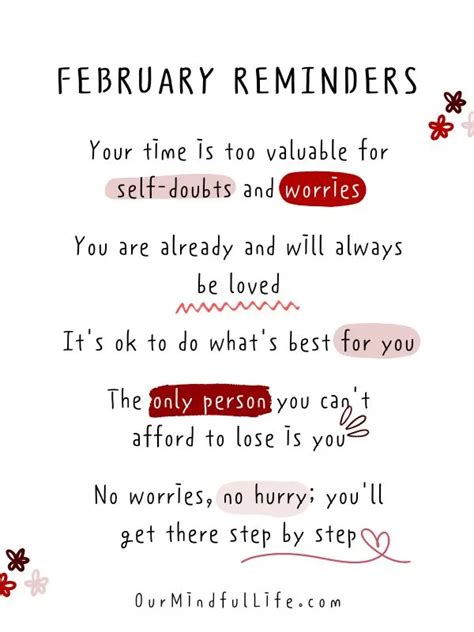 FEBRUARY REMINDERS
Your time is too valuable for
self-doubts and worries
You are already and will always
be loved
It's ok to do what's best for you
The only person you can't
afford to lose is you
No worries, no hurry; you'll
get there step by step
OurMindfulLife.com